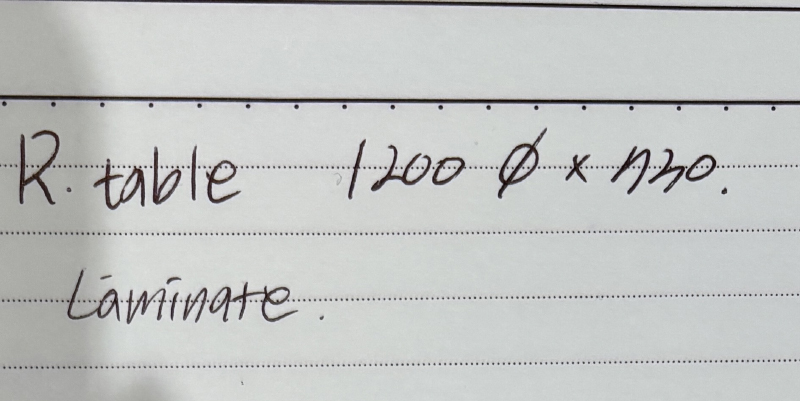 R. table 1200 Ø × 730.
Laminate.